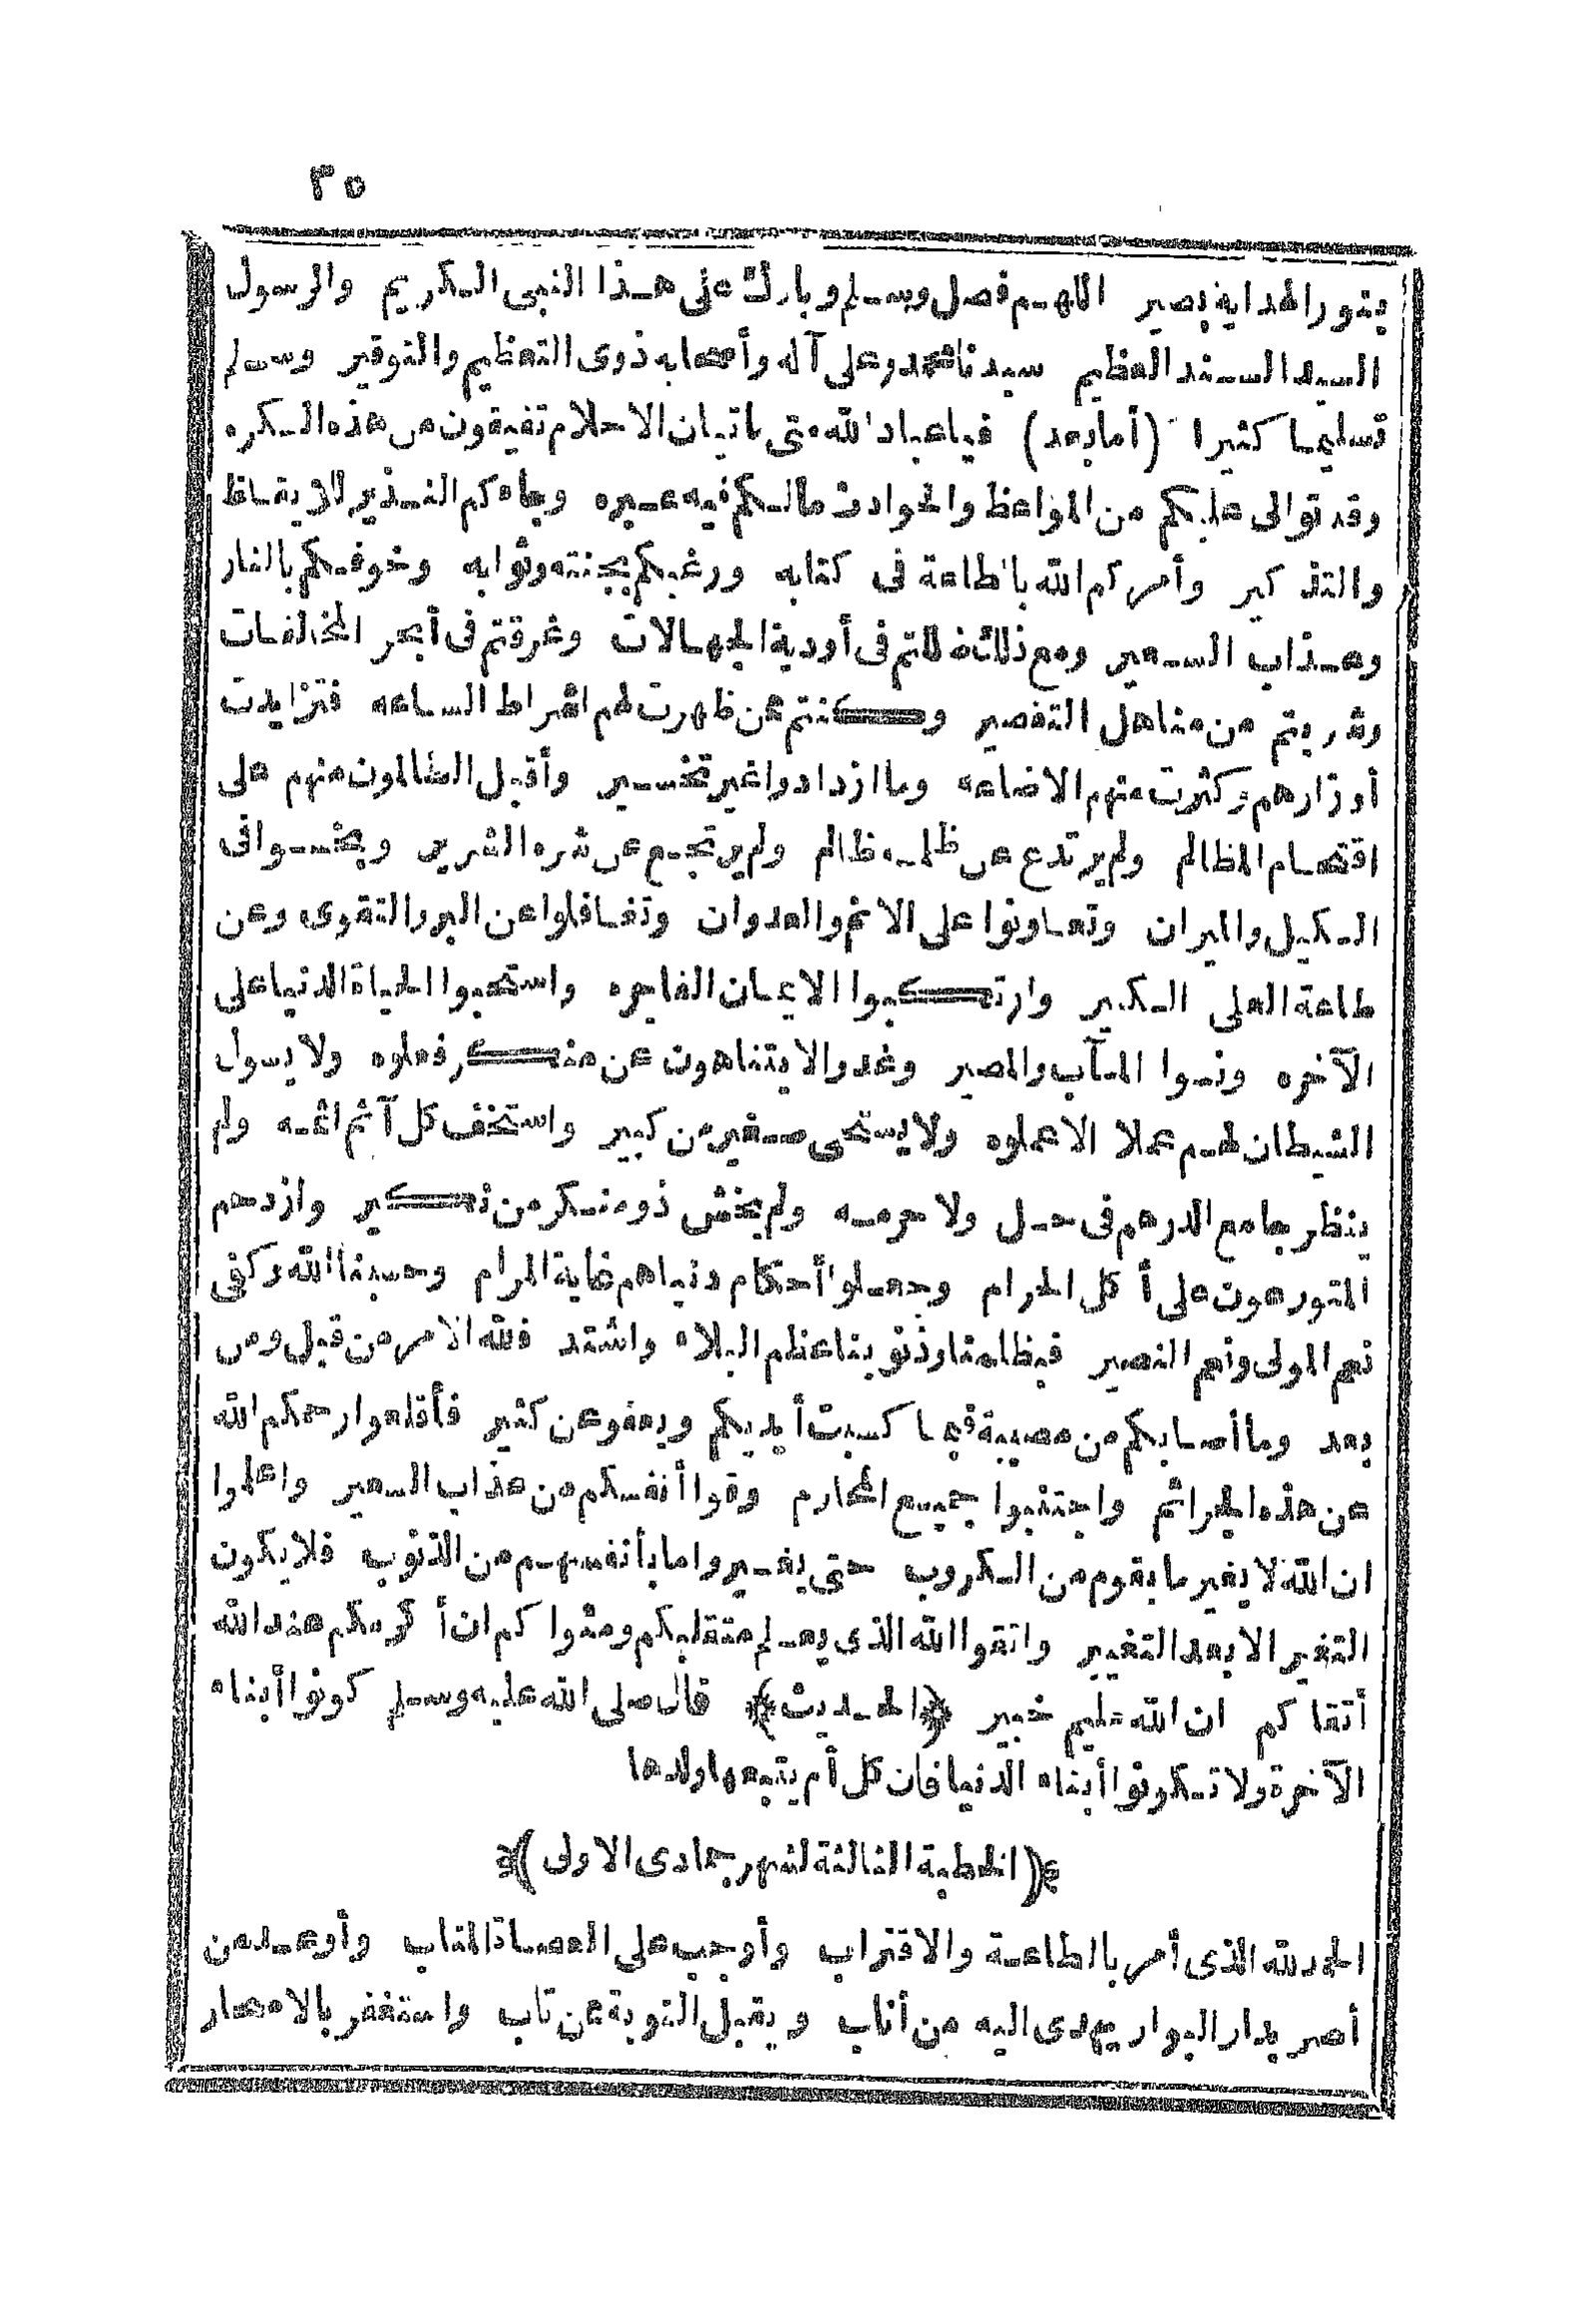 ٣٥
بنور الهدايه بصير اللهم فصل وسلم وبارك على هذا النبي الكريم والرسول
السيد السند العظيم سيدنا محمد وعلى آله وأصحابه ذوى التعظيم والتوقير وسلم
تسليما كثيرا (أما بعد) فياعباد الله متى ياتيان الاحلام تفيقون من هذه السكره
وقد توالى عليكم من المواعظ والحوادث مالكم فيه عبره وجاءكم النذير للايقاظ
والتذكير وأمركم الله بالطاعة فى كتابه ورغبكم بجنته وثوابه وخوفكم بالنار
وعذاب السعير ومع ذلك ضللتم فى أودية الجهالات وغرقتم فى أبحر المخالفات
وشربتم من مناهل التقصير وكنتم ممن ظهرت لهم اشراط الساعه فتزايدت
أوزارهم وكثرت منهم الاضاعه وما ازدادوا غير تخسير وأقبل الظالمون منهم على
اقتحام المظالم ولم يرتدع عن ظلمه ظالم ولم يرتجع عن شره الشرير وبخسوا فى
الكيل والميزان وتعاونوا على الاثم والعدوان وتغافلوا عن البر والتقوى وعن
طاعة العلى الكبير وارتكبوا الايمان الفاجره واستحبوا الحياة الدنيا على
الآخره ونسوا المآب والمصير وغدوا لا يتناهون عن منكر فعلوه ولا يسول
الشيطان لهم عملا الا عملوه ولا يستحى صغير من كبير واستخف كل آثم اثمه ولم
ينظر جامع الدرهم فى حل ولا حرمه ولم يخش ذو منكر من نكير وازدحم
المتورعون على أكل الحرام وجعلوا أحكام دنياهم غاية المرام وحسبنا الله وكفى
نعم المولى ونعم النصير فبظلمنا وذنوبنا عظم البلاء واشتد فلله الامر من قبل ومن
بعد وما أصابكم من مصيبة فبما كسبت أيديكم ويعفو عن كثير فأقلعوا رحمكم الله
عن هذه الجرائم واجتنبوا جميع المحارم وقوا أنفسكم من عذاب السعير واعلموا
ان الله لا يغير ما بقوم من الكروب حتى يغيروا ما بأنفسهم من الذنوب فلا يكون
التغير الا بعد التغيير واتقوا الله الذى يعلم متقلبكم ومثواكم ان أكرمكم عند الله
أتقاكم ان الله عليم خبير ﴿الحديث﴾ قال صلى الله عليه وسلم كونوا أبناء
الآخرة ولا تكونوا أبناء الدنيا فان كل أم يتبعها ولدها
﴿(الخطبة الثالثة لشهر جمادى الاولى)﴾
الحمد لله الذى أمر بالطاعة والاقتراب وأوجب على العصاة المتاب وأوعد من
أصر بدار البوار يهدى اليه من أناب ويقبل التوبة ممن تاب واستغفر بالاسحار